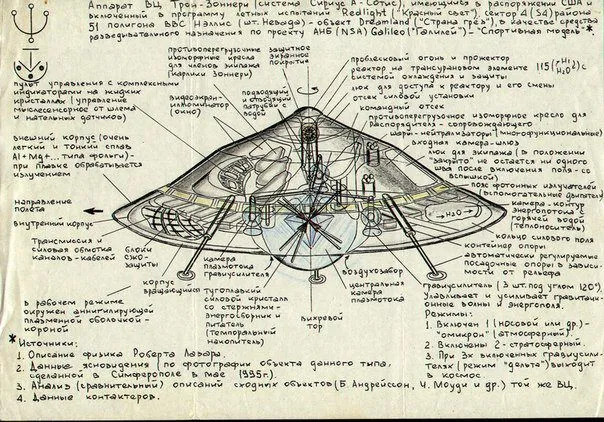 Аппарат ВЦ Трон-Зоннери (система Сириус А-Сотис), имеющийся в распоряжении США и
включенный в программу летных испытаний "Redlight" ("Красный свет") сектор 4 (S4) района
51 полигона ВВС Нэллис (шт. Невада) - объект Dreamland ("Страна грез"), в качестве средства
разведывательного назначения по проекту АНБ (NSA) Galileo ("Галилей") - "Спортивная модель" *
противоперегрузочные
изоморфные кресла
для членов экипажа
(карлики Зоннери)
защитное
экранное
покрытие
проблесковый огонь и прожектор
реактор на трансурановом элементе
с системой охлаждения и защиты
люк для доступа к реактору и его смены
отсек силовой установки
командный отсек
пульт управления с комплексными
индикаторами на жидких
кристаллах (управление
мыслесенсорное от шлема
и нательных датчиков)
видеоэкран-
иллюминатор
(окно)
подводящий
и отводящий
патрубки с
водой
противоперегрузочное изоморфное кресло для
распорядителя - сопровождающего
шары-нейтрализаторы (многофункциональные)
входная камера-шлюз
люк для экипажа (в положении
"закрыто" не остается ни одного
шва после включения поля - со
вспышкой)
внешний корпус (очень
легкий и тонкий сплав
Al+Mg+... типа фольги) -
при плавке обрабатывается
излучением
пояс фотонных излучателей
(вспомогательные двигатели)
камера-контур
энергопотока с
горячей водой
(теплоноситель)
H₂O
направление
полета
внутренний корпус
кольцо силового поля
контейнер опоры
автоматически регулируемые
посадочные опоры в зависи-
мости от рельефа
Трансмиссия и
силовая обмотка
каналов-кабелей
блоки
СЖО-
защиты
камера
плазмотока
гравиусилителя
воздухозабор
центральная
камера
плазмотока
гравиусилитель (3 шт. под углом 120°).
Улавливает и усиливает гравитаци-
онные волны и энергополя.
Режимы:
1. Включен 1 (носовой или др.) -
"омикрон" (атмосферный).
2. Включены 2 - стратосферный.
3. При 3х включенных гравиусили-
телях (режим "дельта") выходит
в космос.
корпус
вращающийся
тугоплавкий
силовой кристалл
со стержнями-
энергосборник и
питатель
(темпоральный
накопитель)
вихревой
тор
в рабочем режиме
окружен аннигилирующей
плазменной оболочкой-
короной
* Источники:
1. Описание физика Роберта Лазара.
2. Данные ясновидения (по фотографии объекта данного типа,
сделанной в Симферополе в мае 1995г.).
3. Анализ (сравнительный) описаний сходных объектов (Б. Андрейссон, Ч. Моуди и др.) той же ВЦ.
4. Данные контактеров.